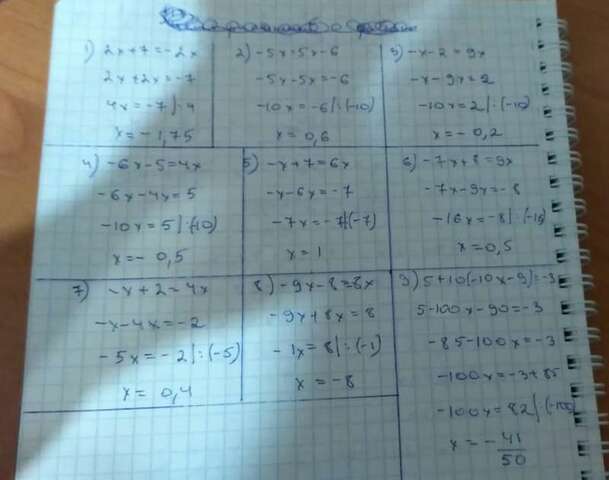 1) 2x+7=-2x
2x+2x=-7
4x=-7|:4
x=-1,75
2) -5x=5x-6
-5x-5x=-6
-10x=-6|:(-10)
x=0,6
3) -x-2=9x
-x-9x=2
-10x=2|:(-10)
x=-0,2
4) -6x-5=4x
-6x-4x=5
-10x=5|:(-10)
x=-0,5
5) -x+7=6x
-x-6x=-7
-7x=-7|:(-7)
x=1
6) -7x+8=9x
-7x-9x=-8
-16x=-8|:(-16)
x=0,5
7) -x+2=4x
-x-4x=-2
-5x=-2|:(-5)
x=0,4
8) -9x-8=8x
-9x+8x=8
-1x=8|:(-1)
x=-8
9) 5+10(-10x-9)=-3
5-100x-90=-3
-85-100x=-3
-100x=-3+85
-100x=82|:(-100)
x=-41/50